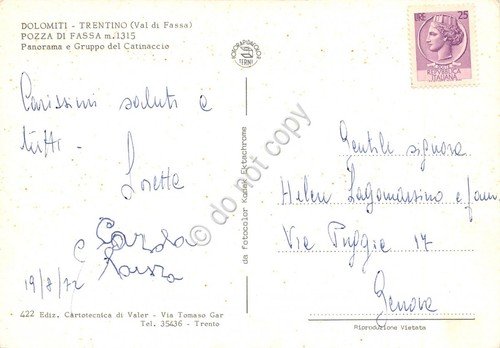 DOLOMITI - TRENTINO (Val di Fassa)
POZZA DI FASSA m. 1315
Panorama e Gruppo del Catinaccio
TERNI
LIRE 25
POSTE
REPVBBLICA
ITALIANA
Carissimi saluti a
tutti.
Loretta
19/8/72
da fotocolor Kodak Ektachrome
do not copy
Gentile signora
Helen Lagomarsino e fam.
Via Puggia 17
Genova
422 Ediz. Cartotecnica di Valer - Via Tomaso Gar
Tel. 35436 - Trento
Riproduzione Vietata